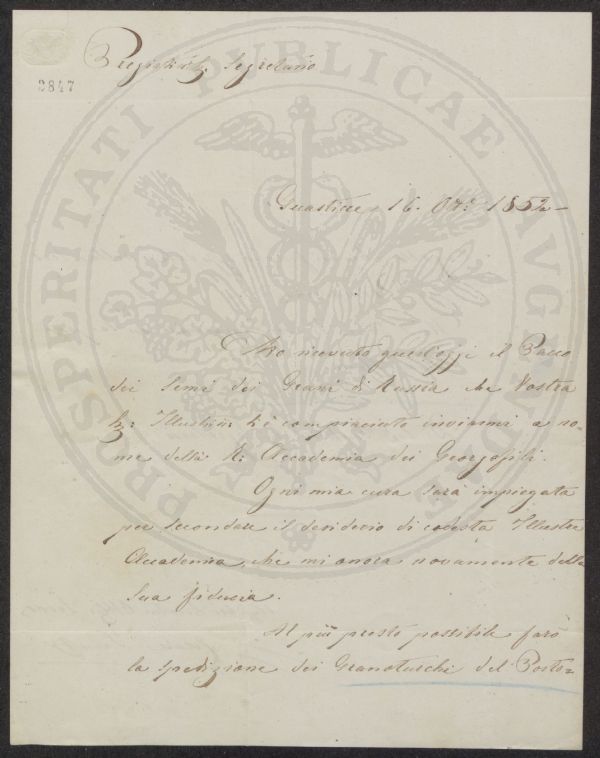 Segretario
2847
PROSPERITATI PUBLICAE AUGENDAE
Guasticce 16. Ott: 1852 -
Ho ricevuto quest'oggi il Pacco
dei Semi dei Grani di Russia che Vostra
Illustriss: si è compiaciuto inviarmi a no-
me della R: Accademia dei Georgofili.
Ogni mia cura sarà impiegata
per secondare il desiderio di codesta Illustre
Accademia, che mi onora novamente della
sua fiducia.
Al più presto possibile farò
la spedizione dei Granoturchi del Porto=